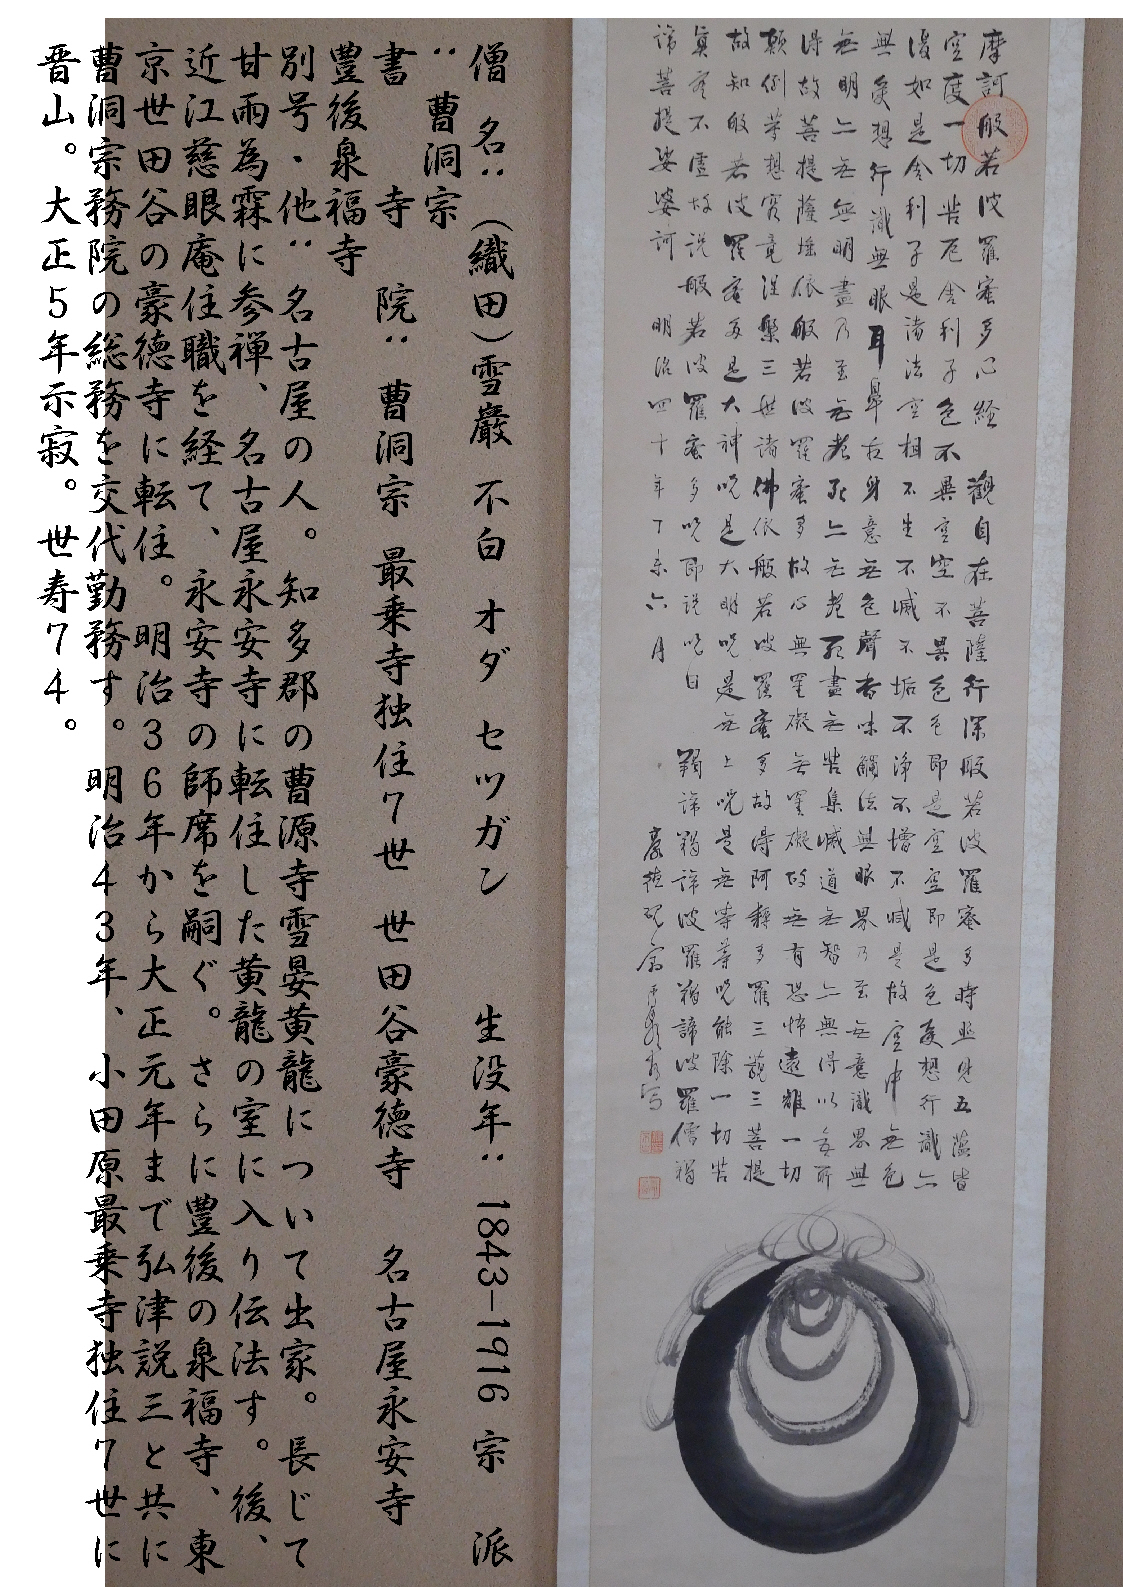 摩訶般若波羅蜜多心経 觀自在菩薩行深般若波羅蜜多時照見五蘊皆
空度一切苦厄舎利子色不異空空不異色色即是空空即是色受想行識亦
復如是舎利子是諸法空相不生不滅不垢不浄不増不減是故空中無色
無受想行識無眼耳鼻舌身意無色聲香味觸法無眼界乃至無意識界無
無明亦無無明盡乃至無老死亦無老死盡無苦集滅道無智亦無得以無所
得故菩提薩埵依般若波羅蜜多故心無罣礙無罣礙故無有恐怖遠離一切
顛倒夢想究竟涅槃三世諸佛依般若波羅蜜多故得阿耨多羅三藐三菩提
故知般若波羅蜜多是大神呪是大明呪是無上呪是無等等呪能除一切苦
真実不虚故説般若波羅蜜多呪即説呪曰 羯諦羯諦波羅羯諦波羅僧羯
諦菩提娑婆訶 明治四十年丁未六月
豪徳
僧 名：（織田）雪巖 不白 オダ セツガン 生没年：1843-1916 宗 派
：曹洞宗
書 寺 院：曹洞宗 最乗寺独住7世 世田谷豪徳寺 名古屋永安寺
豊後泉福寺
別号・他：名古屋の人。知多郡の曹源寺雪晏黄龍について出家。長じて
甘雨為霖に参禅、名古屋永安寺に転住した黄龍の室に入り伝法す。後、
近江慈眼庵住職を経て、永安寺の師席を嗣ぐ。さらに豊後の泉福寺、東
京世田谷の豪徳寺に転住。明治36年から大正元年まで弘津説三と共に
曹洞宗務院の総務を交代勤務す。明治43年、小田原最乗寺独住7世に
晋山。大正5年示寂。世寿74。